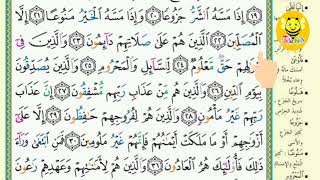 ١٩ إِذَا مَسَّهُ الشَّرُّ جَزُوعًا ٢٠ وَإِذَا مَسَّهُ الْخَيْرُ مَنُوعًا ٢١ إِلَّا
الْمُصَلِّينَ ٢٢ الَّذِينَ هُمْ عَلَىٰ صَلَاتِهِمْ دَآئِمُونَ ٢٣ وَالَّذِينَ فِىٓ
أَمْوَٰلِهِمْ حَقٌّ مَّعْلُومٌ ٢٤ لِّلسَّآئِلِ وَالْمَحْرُومِ ٢٥ وَالَّذِينَ يُصَدِّقُونَ
بِيَوْمِ الدِّينِ ٢٦ وَالَّذِينَ هُم مِّنْ عَذَابِ رَبِّهِم مُّشْفِقُونَ ٢٧ إِنَّ عَذَابَ
رَبِّهِمْ غَيْرُ مَأْمُونٍ ٢٨ وَالَّذِينَ هُمْ لِفُرُوجِهِمْ حَٰفِظُونَ ٢٩ إِلَّا عَلَىٰٓ
أَزْوَٰجِهِمْ أَوْ مَا مَلَكَتْ أَيْمَٰنُهُمْ فَإِنَّهُمْ غَيْرُ مَلُومِينَ ٣٠ فَمَنِ ابْتَغَىٰ وَرَآءَ
ذَٰلِكَ فَأُو۟لَٰٓئِكَ هُمُ الْعَادُونَ ٣١ وَالَّذِينَ هُمْ لِأَمَٰنَٰتِهِمْ وَعَهْدِهِمْ رَٰعُونَ